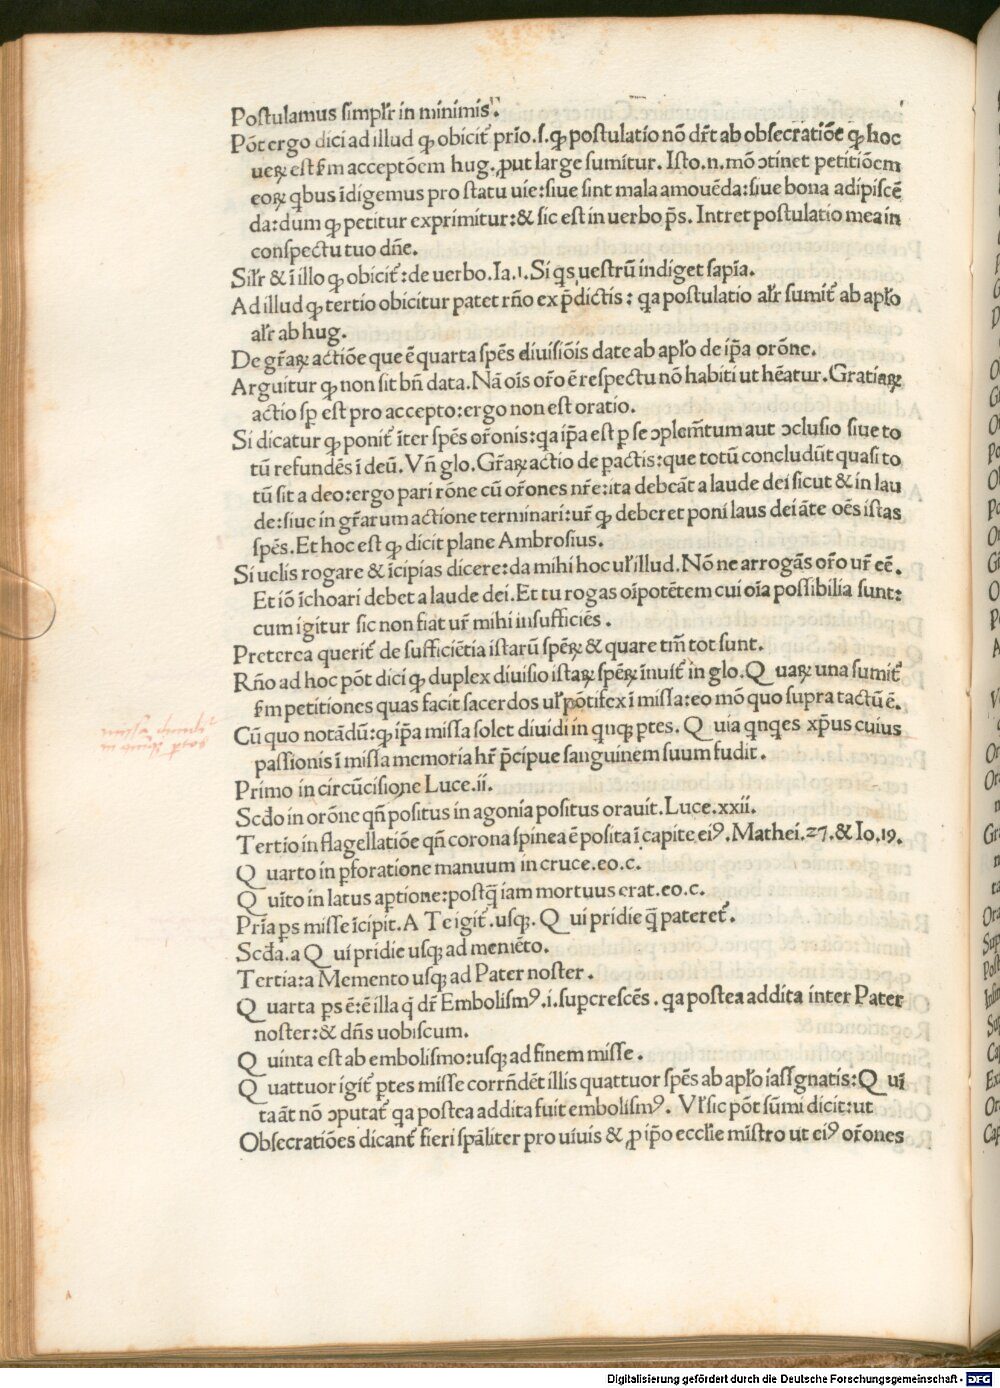 Postulamus simpłr in minimis.
Põt ergo dici ad illud ꝙ obicit᷑ prio.ſ.ꝙ postulatio nõ dr̃t ab obsecratiõe ꝙ hoc
ueꝝ est ẜm acceptõem hug. ꝓut large sumitur. Isto.n.mõ ↄtinet petitiõem
eoꝝ q̃bus ĩdigemus pro statu uie:siue sint mala amouẽda:siue bona adipiscẽ
da:dum ꝙ petitur exprimitur:& sic est in uerbo p̃s. Intret postulatio mea in
conspectu tuo dñe.
Siłr & ĩ illo ꝙ obicit᷑:de uerbo.Ia.1.Si q̃s uestrũ indiget sapĩa.
Ad illud ꝙ tertio obicitur patet rñо ex p̃dictis: q̃a postulatio ałr sumit᷑ ab apło
ałr ab hug.
De gr̃aꝝ actiõe que ẽ quarta spẽs diuisiõis date ab apło de ip̃a orõne.
Arguitur ꝙ non sit bñ data. Nã oĩs or̃o ẽ respectu nõ habiti ut hẽatur.Gratiaꝝ
actio sp̃ est pro accepto:ergo non est oratio.
Si dicatur ꝙ ponit᷑ ĩter spẽs or̃onis:q̃a ip̃a est ꝑ se ↄplem̃tum aut ↄclusio siue to
tũ refundẽs ĩ deũ. Vñ glo. Gr̃aꝝ actio de ꝑactis:que totũ concludũt quasi to
tũ sit a deo:ergo pari rõne cũ or̃ones nr̃e:ita debeãt a laude dei sicut & in lau
de:siue in gr̃arum actione terminari:ur̃ ꝙ deberet poni laus dei ãte oẽs istas
spẽs.Et hoc est ꝙ dicit plane Ambrosius.
Si uelis rogare & ĩcipias dicere:da mihi hoc uł illud. Nõ ne arrogãs or̃o ur̃ eẽ.
Et iõ ĩchoari debet a laude dei.Et tu rogas oĩpotẽtem cui oĩa possibilia sunt:
cum igitur sic non fiat ur̃ mihi insufficiẽs.
Preterea querit᷑ de sufficiẽtia istarũ spẽꝝ & quare tm̃ tot sunt.
Rñо ad hoc põt dici ꝙ duplex diuisio istaꝝ spẽꝝ ĩnuit᷑ in glo.Q uaꝝ una sumit᷑
ẜm petitiones quas facit sacerdos uł põtifex ĩ missa:eo mõ quo supra tactũ ẽ.
Cũ quo notãdũ:ꝙ ip̃a missa solet diuidi in q̃nꝗ ꝑtes. Q uia q̃nq̃es xp̃us cuius
passionis ĩ missa memoria hr̃ p̃cipue sanguinem suum fudit.
Primo in circũcisione Luce.ii.
Scđo in orõne qñ positus in agonia positus orauit.Luce.xxii.
Tertio in flagellatiõe qñ corona spinea ẽ posita ĩ capite eiꝰ.Mathei.27.& Io.19.
Q uarto in ꝑforatione manuum in cruce.eo.c.
Q uĩto in latus aptione:postq̃ iam mortuus erat.eo.c.
Prĩa ps misse ĩcipit.A Te igit᷑.usqꝫ.Q ui pridie q̃ pateret᷑.
Scđa.a Q ui pridie usqꝫ ad memẽto.
Tertia:a Memento usqꝫ ad Pater noster.
Q uarta ꝑs ẽ:ẽ illa q̃ dr̃ Embolismꝰ.i.supcrescẽs.q̃a postea addita inter Pater
noster:& dñs uobiscum.
Q uinta est ab embolismo:usqꝫ ad finem misse.
Q uattuor igit᷑ ꝑtes misse corrñdẽt illis quattuor spẽs ab apło iassignatis:Q uĩ
ta ãt nõ ↄputat᷑ q̃a postea addita fuit embolismꝰ. Vł sic põt sũmi dicit:ut
Obsecratiões dicant᷑ fieri spãliter pro uiuis & ꝓ ip̃o ecclie mĩstro ut eiꝰ or̃ones
Digitalisierung gefördert durch die Deutsche Forschungsgemeinschaft - DFG